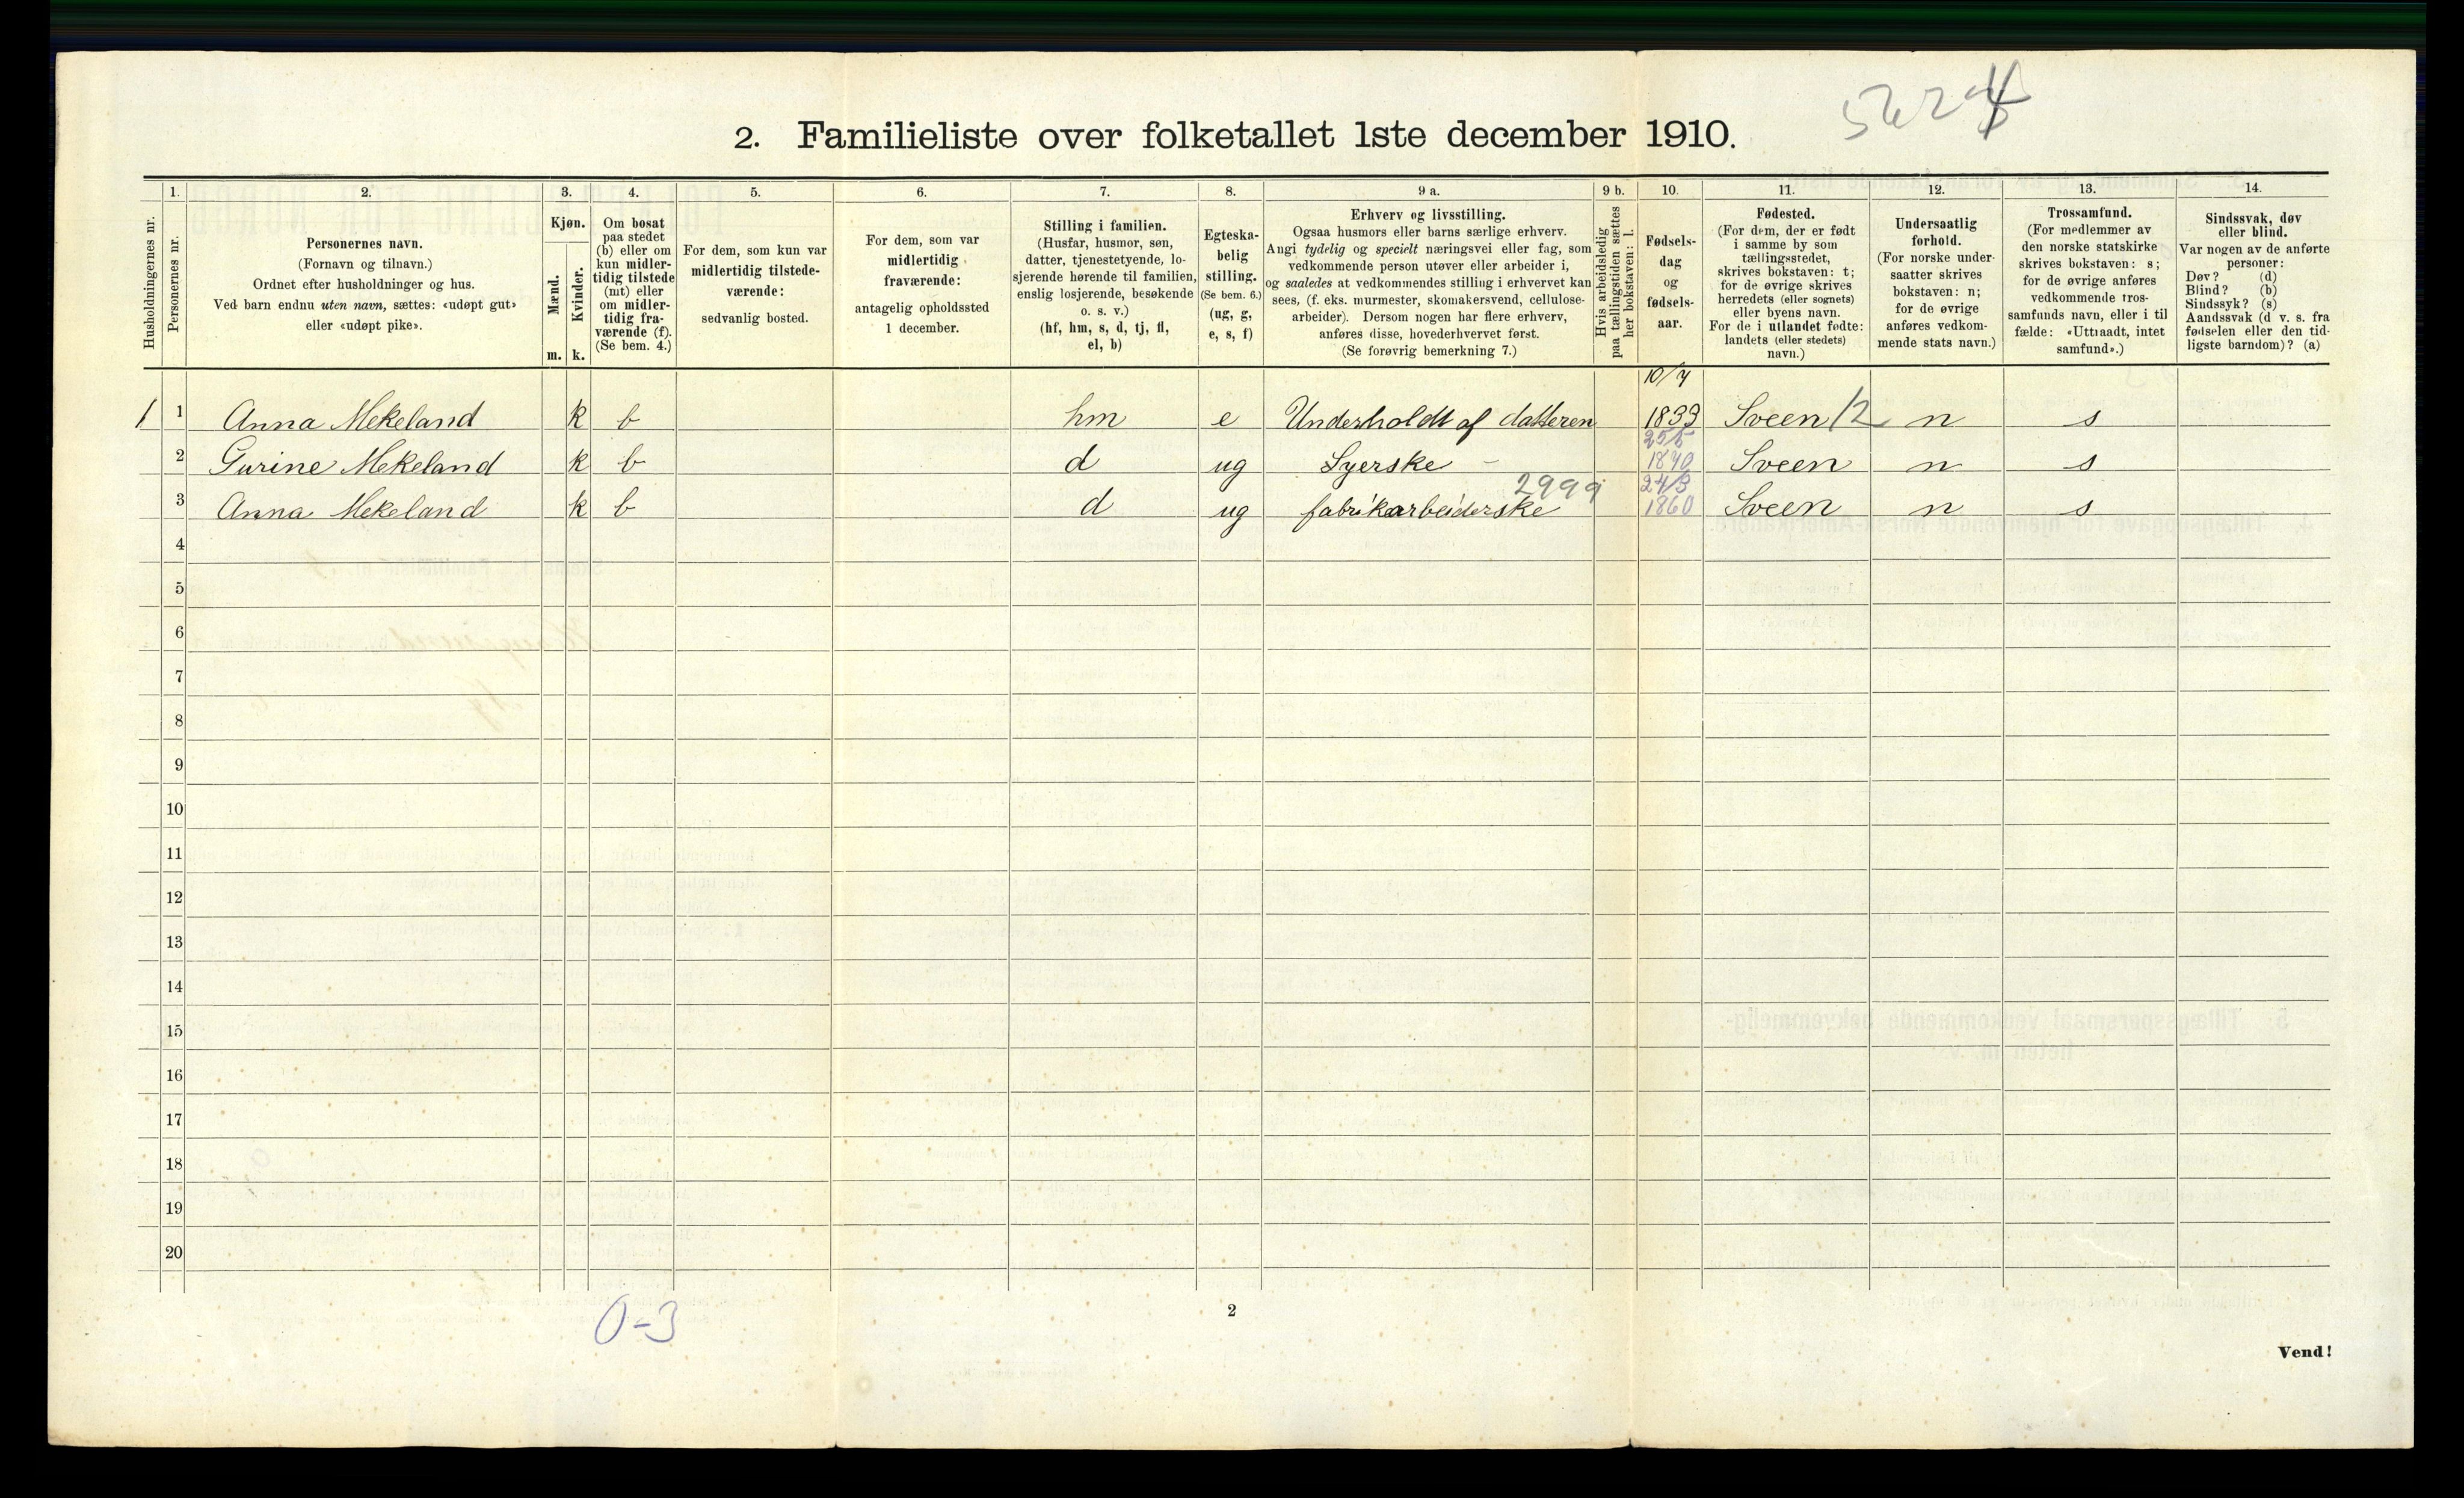 2. Familieliste over folketallet 1ste december 1910.
Husholdningernes nr.
1.
Personernes nr.
2.
Personernes navn.
(Fornavn og tilnavn.)
Ordnet efter husholdninger og hus.
Ved barn endnu uten navn, sættes: «udøpt gut»
eller «udøpt pike».
3.
Kjøn.
Mænd.
Kvinder.
m. k.
4.
Om bosat
paa stedet
(b) eller om
kun midler-
tidig tilstede
(mt) eller
om midler-
tidig fra-
værende (f).
(Se bem. 4.)
5.
For dem, som kun var
midlertidig tilstede-
værende:
sedvanlig bosted.
6.
For dem, som var
midlertidig
fraværende:
antagelig opholdssted
1 december.
7.
Stilling i familien.
(Husfar, husmor, søn,
datter, tjenestetyende, lo-
sjerende hørende til familien,
enslig losjerende, besøkende
o. s. v.)
(hf, hm, s, d, tj, fl,
el, b)
8.
Egteska-
belig
stilling.
(Se bem. 6.)
(ug, g,
e, s, f)
9 a.
Erhverv og livsstilling.
Ogsaa husmors eller barns særlige erhverv.
Angi tydelig og specielt næringsvei eller fag, som
vedkommende person utøver eller arbeider i,
og saaledes at vedkommendes stilling i erhvervet kan
sees, (f. eks. murmester, skomakersvend, cellulose-
arbeider). Dersom nogen har flere erhverv,
anføres disse, hovederhvervet først.
(Se forøvrig bemerkning 7.)
9 b.
Hvis arbeidsledig
paa tællingstiden sættes
her bokstaven: l.
10.
Fødsels-
dag
og
fødsels-
aar.
11.
Fødested.
(For dem, der er født
i samme by som
tællingsstedet,
skrives bokstaven: t;
for de øvrige skrives
herredets (eller sognets)
eller byens navn.
For de i utlandet fødte:
landets (eller stedets)
navn.)
12.
Undersaatlig
forhold.
(For norske under-
saatter skrives
bokstaven: n;
for de øvrige
anføres vedkom-
mende stats navn.)
13.
Trossamfund.
(For medlemmer av
den norske statskirke
skrives bokstaven: s;
for de øvrige anføres
vedkommende tros-
samfunds navn, eller i til
fælde: «Uttraadt, intet
samfund».)
14.
Sindssvak, døv
eller blind.
Var nogen av de anførte
personer:
Døv? (d)
Blind? (b)
Sindssyk? (s)
Aandssvak (d v. s. fra
fødselen eller den tid-
ligste barndom)? (a)
10/4
1 1 Anna Mekeland k b hm e Underholdt af datteren 1833 Sveen 12 n s
25/5
2 Gurine Mekeland k b d ug Syerske - 1870 Sveen n s
2999 24/3
3 Anna Mekeland k b d ug fabrikarbeiderske 1860 Sveen n s
4
5
6
7
8
9
10
11
12
13
14
15
16
17
18
19
20
0-3
2
Vend!